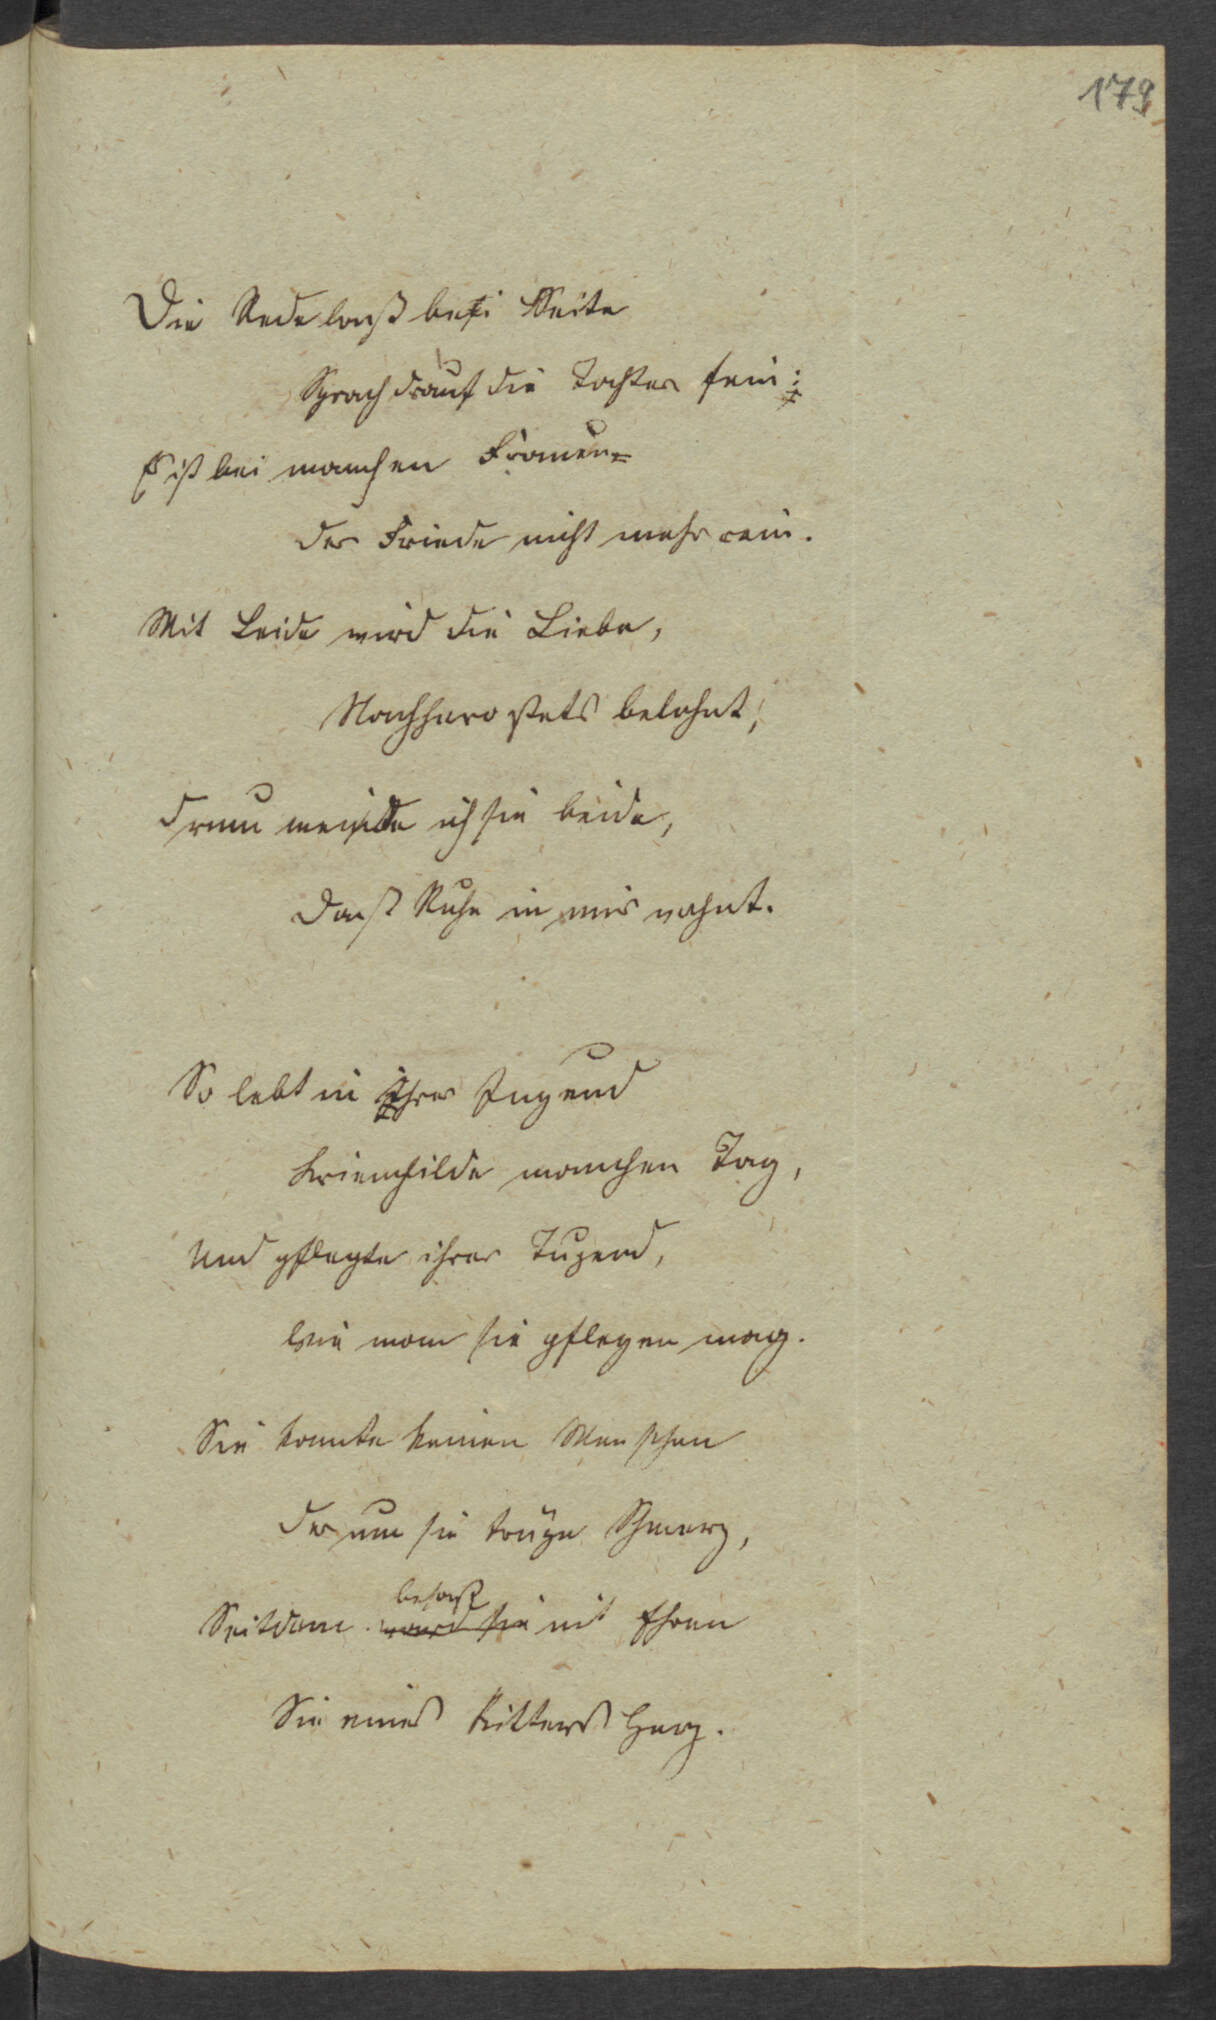 179
Die Rede laß bei Seite
Sprach drauf die Tochter fein:
Es ist bei manchen Frauen
der Friede nicht mehr rein.
Mit Leide wird die Liebe,
Nachhero stets belohnt,
drum meide ich sie beide,
Daß Ruhe in mir wohnt.
So lebt in ihrer Jugend
Kriemhilde manchen Tag,
Und pflegte ihrer Tugend,
Wie man sie pflegen mag.
Sie kannte keinen Menschen
der um sie trüge Schmerz,
besaß
Seitdem ward sie mit Ehren
Sie eines Ritters Herz.